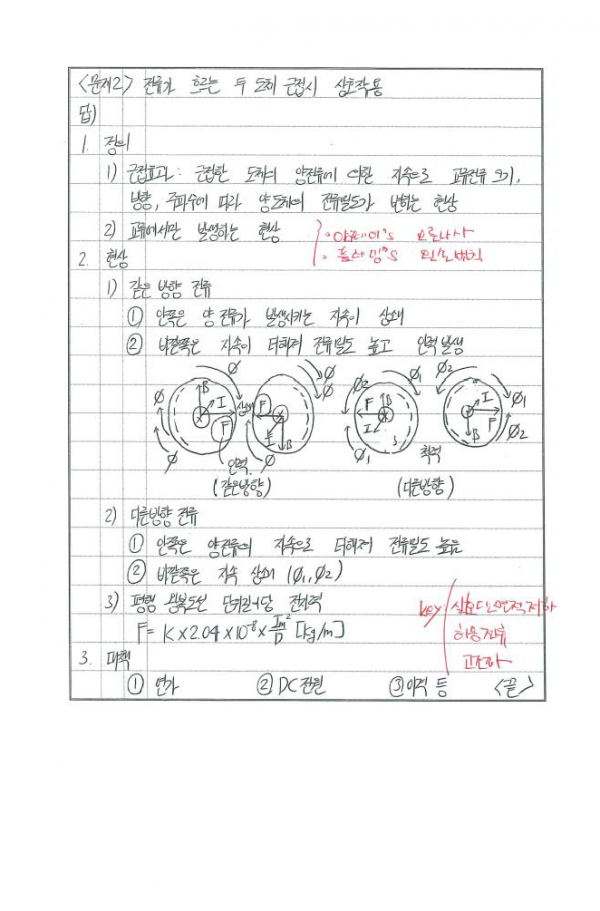 <문제2> 전류가 흐르는 두 도체 근접시 상호작용
답)
1. 정의
1) 근접효과: 근접한 도체의 양전류에 의한 자속으로 교류전류 크기,
방향, 주파수에 따라 양도체의 전류밀도가 변하는 현상
2) 교류에서만 발생하는 현상
· 암페어's 오른나사
· 플레밍's 왼손법칙
2. 현상
1) 같은 방향 전류
① 안쪽은 양 전류가 발생시키는 자속이 상쇄
② 바깥쪽은 자속이 더해져 전류밀도 높고 인력발생
Φ Φ Φ2 Φ1 Φ2
Φ B I 상쇄 F Φ F B B Φ1
F I B I F Φ2
Φ Φ Φ1
인력 척력
(같은방향) (다른방향)
2) 다른방향 전류
① 안쪽은 양전류의 자속으로 더해져 전류밀도 높음
② 바깥쪽은 자속 상쇄 (Φ1, Φ2)
3) 평행 왕복도선 단위길이당 전자력
F = K × 2.04 × 10⁻⁸ × Im²/D [kg/m]
key 실효단면적저하
허용전류
3. 대책
① 연가 ② DC전원 ③ 이격 등 <끝>